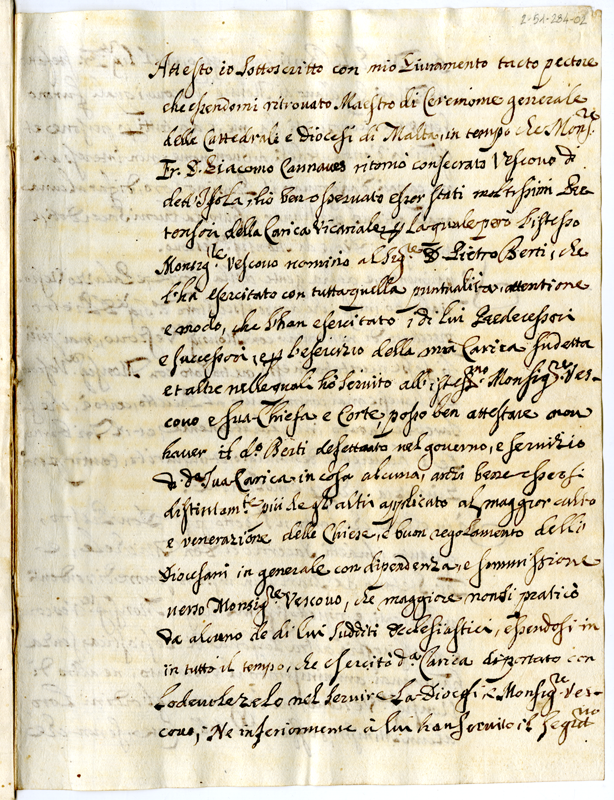 2-51-284-02
Attesto io sottoscritto con mio Giuramento tacto pectore
che essendomi ritrovato Maestro di Ceremonie generale
della Cattedrale e Diocesi di Malta, in tempo che Mons.re
Fr. D. Giacomo Cannaves ritornò consecrato Vescovo di
dett'Isola, hò ben osservato esser stati moltissimi Pre
tensori della Carica Vicariale, La quale però l'istesso
Monsig.re Vescovo nominò al Sig.re D. Pietro Berti, che
l'ha esercitato con tutta quella puntualità, attentione
e modo, che l'han esercitato i di lui Predecessori
e successori, e l'esercizio della mia Carica sudetta
et altre nelle quali hò servito all'istess.mo Monsig.re Ves-
covo e sua Chiesa e Corte, posso ben attestare non
haver il d.o Berti defettuato nel governo, e servizio
d.a sua Carica in cosa alcuna, anzi bene essersi
distintam.te più che gl'altri applicato al maggior culto
e venerazione delle Chiese, e buon regolamento delli
Diocesani in generale con dipendenza, e summissione
verso Monsig.re Vescovo, che maggiore non si praticò
da alcuno de di lui sudditi ecclesiastici, essendosi in
in tutto il tempo, che esercitò d.a Carica diportato con
Lodevole zelo nel servire La Diocesi, e Monsig.re Ves-
covo; Ne inferiormente à lui han servito il